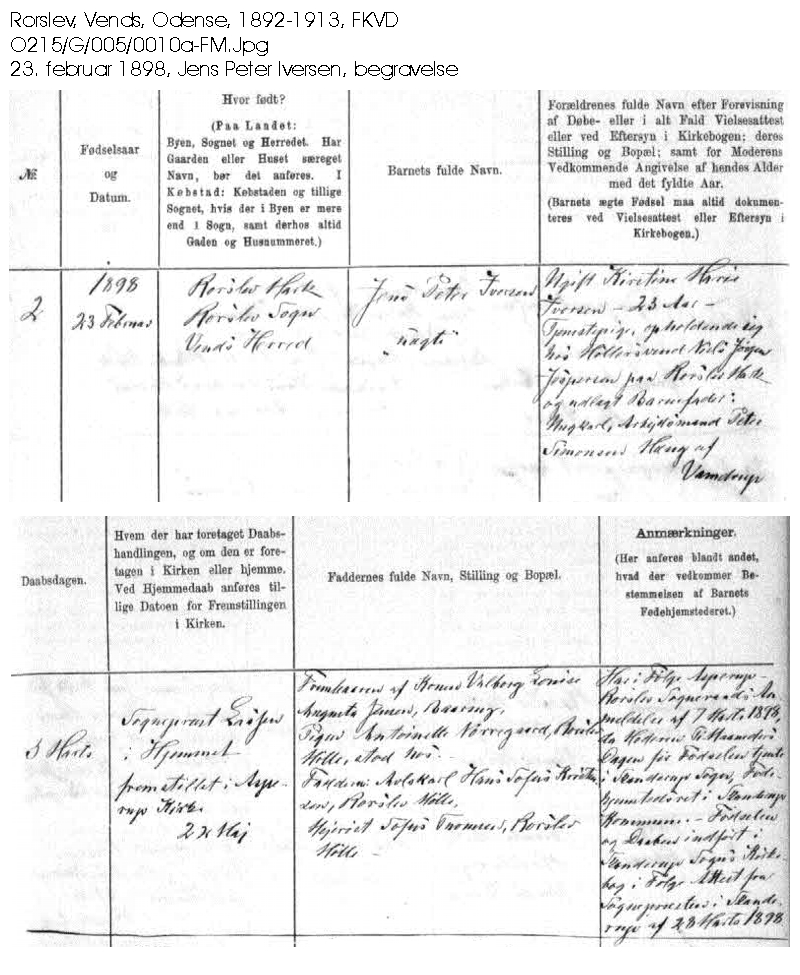 Rorslev, Vends, Odense, 1892-1913, FKVD
O215/G/005/0010a-FM.Jpg
23. februar 1898, Jens Peter Iversen, begravelse
№
Fødselsaar
og
Datum.
Hvor født?
(Paa Landet:
Byen, Sognet og Herredet. Har
Gaarden eller Huset særeget
Navn, bør det anføres. I
Købstad: Købstaden og tillige
Sognet, hvis der i Byen er mere
end 1 Sogn, samt derhos altid
Gaden og Husnummeret.)
Barnets fulde Navn.
Forældrenes fulde Navn efter Forevisning
af Døbe- eller i alt Fald Vielsesattest
eller ved Eftersyn i Kirkebogen; deres
Stilling og Bopæl; samt for Moderens
Vedkommende Angivelse af hendes Alder
med det fyldte Aar.
(Barnets ægte Fødsel maa altid dokumen-
teres ved Vielsesattest eller Eftersyn i
Kirkebogen.)
2
1898
23 Februar
Rorslev Mark
Rorslev Sogn
Vends Herred
Jens Peter Iversen
"uægte"
Ugift Kirstine Marie
Iversen - 23 Aar -
Tjenestepige, opholdende sig
hos Møllersvend Niels Jørgen
Jespersen paa Rorslev Mark
og udlagt Barnefader:
Ungkarl, Arbejdsmand Peter
Simonsen Haug af
Vamdrup
Daabsdagen.
Hvem der har foretaget Daabs-
handlingen, og om den er fore-
tagen i Kirken eller hjemme.
Ved Hjemmedaab anføres til-
lige Datoen for Fremstillingen
i Kirken.
Faddernes fulde Navn, Stilling og Bopæl.
Anmærkninger.
(Her anføres blandt andet,
hvad der vedkommer Be-
stemmelsen af Barnets
Fødehjemstederet.)
5 Marts
Sognepræst
i Hjemmet
fremstillet i Aspe-
rup Kirke
22 Maj
Frembaaren af Konen Valborg Louise
Augusta Jensen, Baaring.
Pigen Antoinette Nørregaard, Rorslev
Mølle, stod hos.
Faddere: Avlskarl Hans Sofus Kristen
sen, Rorslev Mølle,
Mejerist Sofus Thomsen, Rorslev
Mølle -
Har i Følge Asperup-
Rorslev Sogneraads An-
meldelse af 7 Marts 1898,
da Moderen Ti Maaneders
Dagen før Fødselen tjente
i Slanderup Sogn, Føde-
hjemstedsret i Slanderup
Kommune. - Fødselen
og Daaben indført i
Slanderup Sogns Kirke-
bog i Følge Attest fra
Sognepræsten i Slande-
rup af 28 Marts 1898